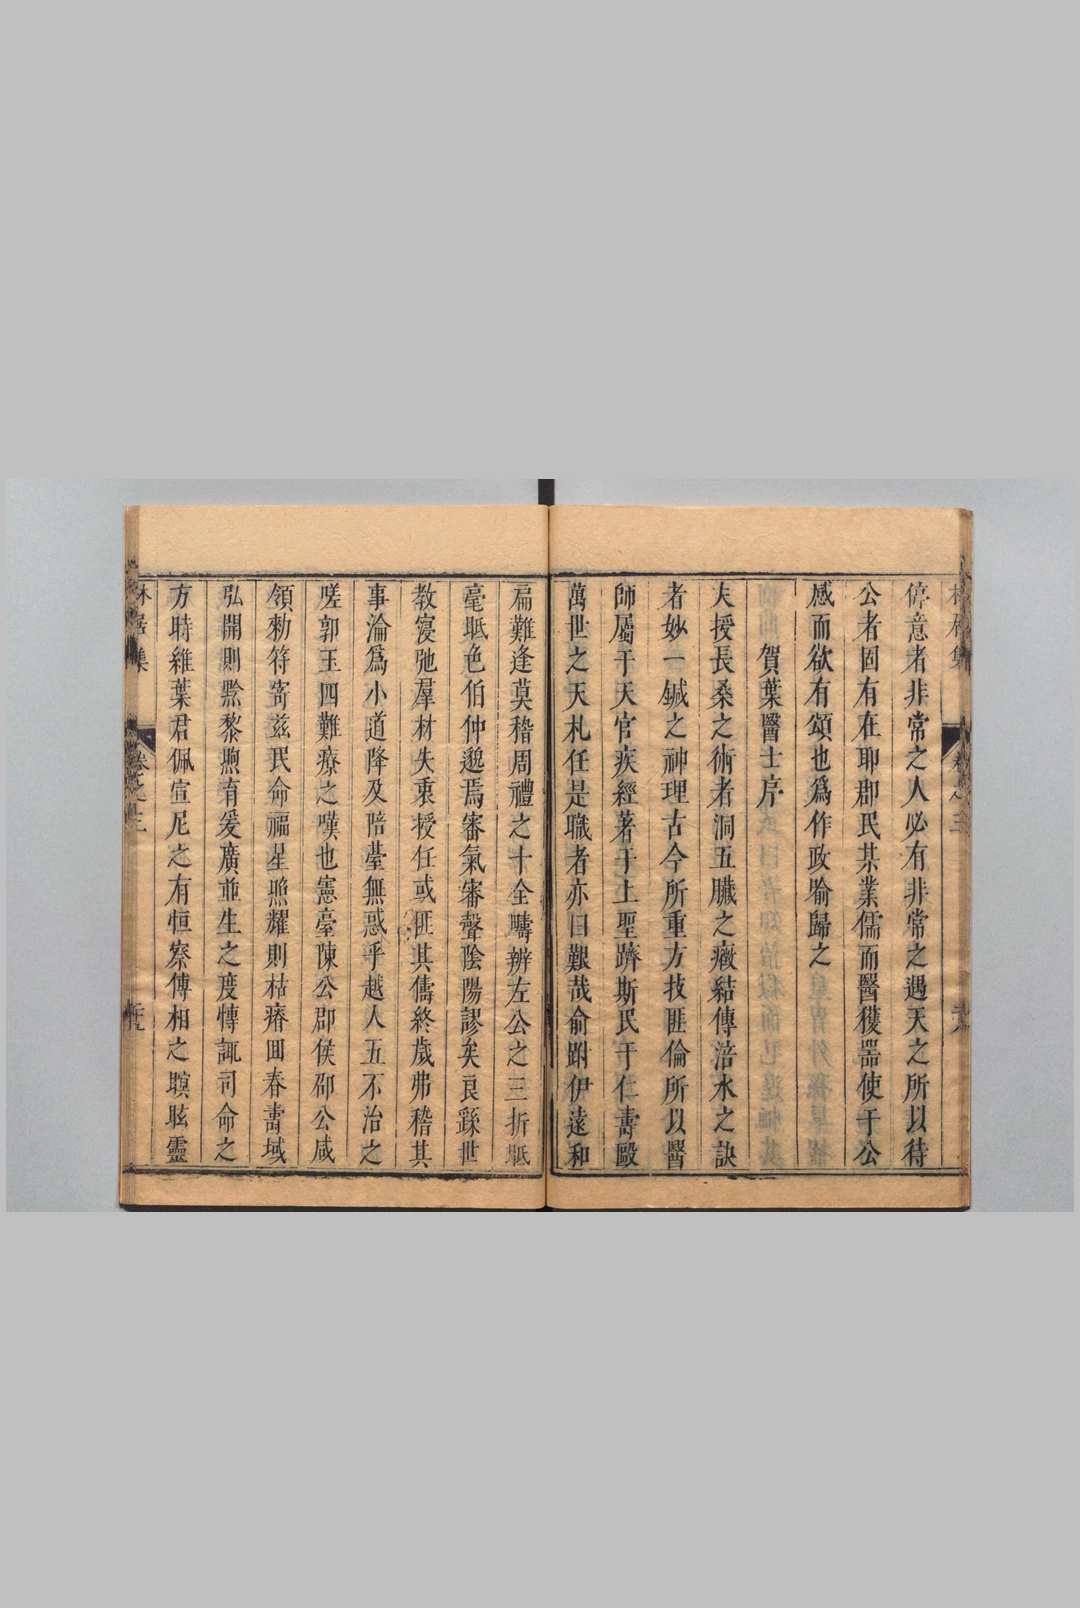 停意者非常之人必有非常之遇天之所以待
公者固有在耶郡民某業儒而醫獲噐使于公
感而欲有頌也爲作政喻歸之
賀葉醫士序
夫授長桑之術者洞五臟之癥結傳涪水之訣
者妙一鍼之神理古今所重方技匪倫所以醫
師屬于天官疾經著于上聖躋斯民于仁壽毆
萬世之夭札任是職者亦曰艱哉俞跗伊遠和
扁難逢莫稽周禮之十全疇辨左公之三折眂
毫眂色伯仲邈焉審氣審聲陰陽謬矣良繇世
教寖弛羣材失衷授任或匪其儔終歲弗稽其
事淪爲小道降及陪臺無惑乎越人五不治之
嗟郭玉四難療之嘆也憲臺陳公郡侯邵公咸
領勑符寄兹民命福星照耀則枯瘠囬春壽域
弘開則黔黎煦育爰廣並生之度慱諏司命之
方時維葉君佩宣尼之有恒察傅相之瞑眩靈
林居集
卷之三